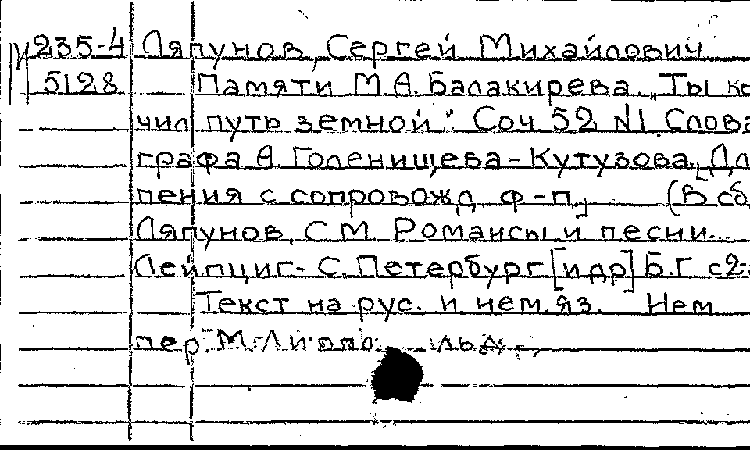 У235-4 Ляпунов, Сергей Михайлович
5128 Памяти М.А. Балакирева. „Ты ко
чил путь земной". Соч 52 N1. Слова
графа А. Голенищева-Кутузова. [Дл
пения с сопровожд ф-п.] (В сб
Ляпунов, С.М. Романсы и песни...
Лейпциг- С. Петербург [и др] Б.Г с2-
Текст на рус. и нем. яз. Нем
пер. М.